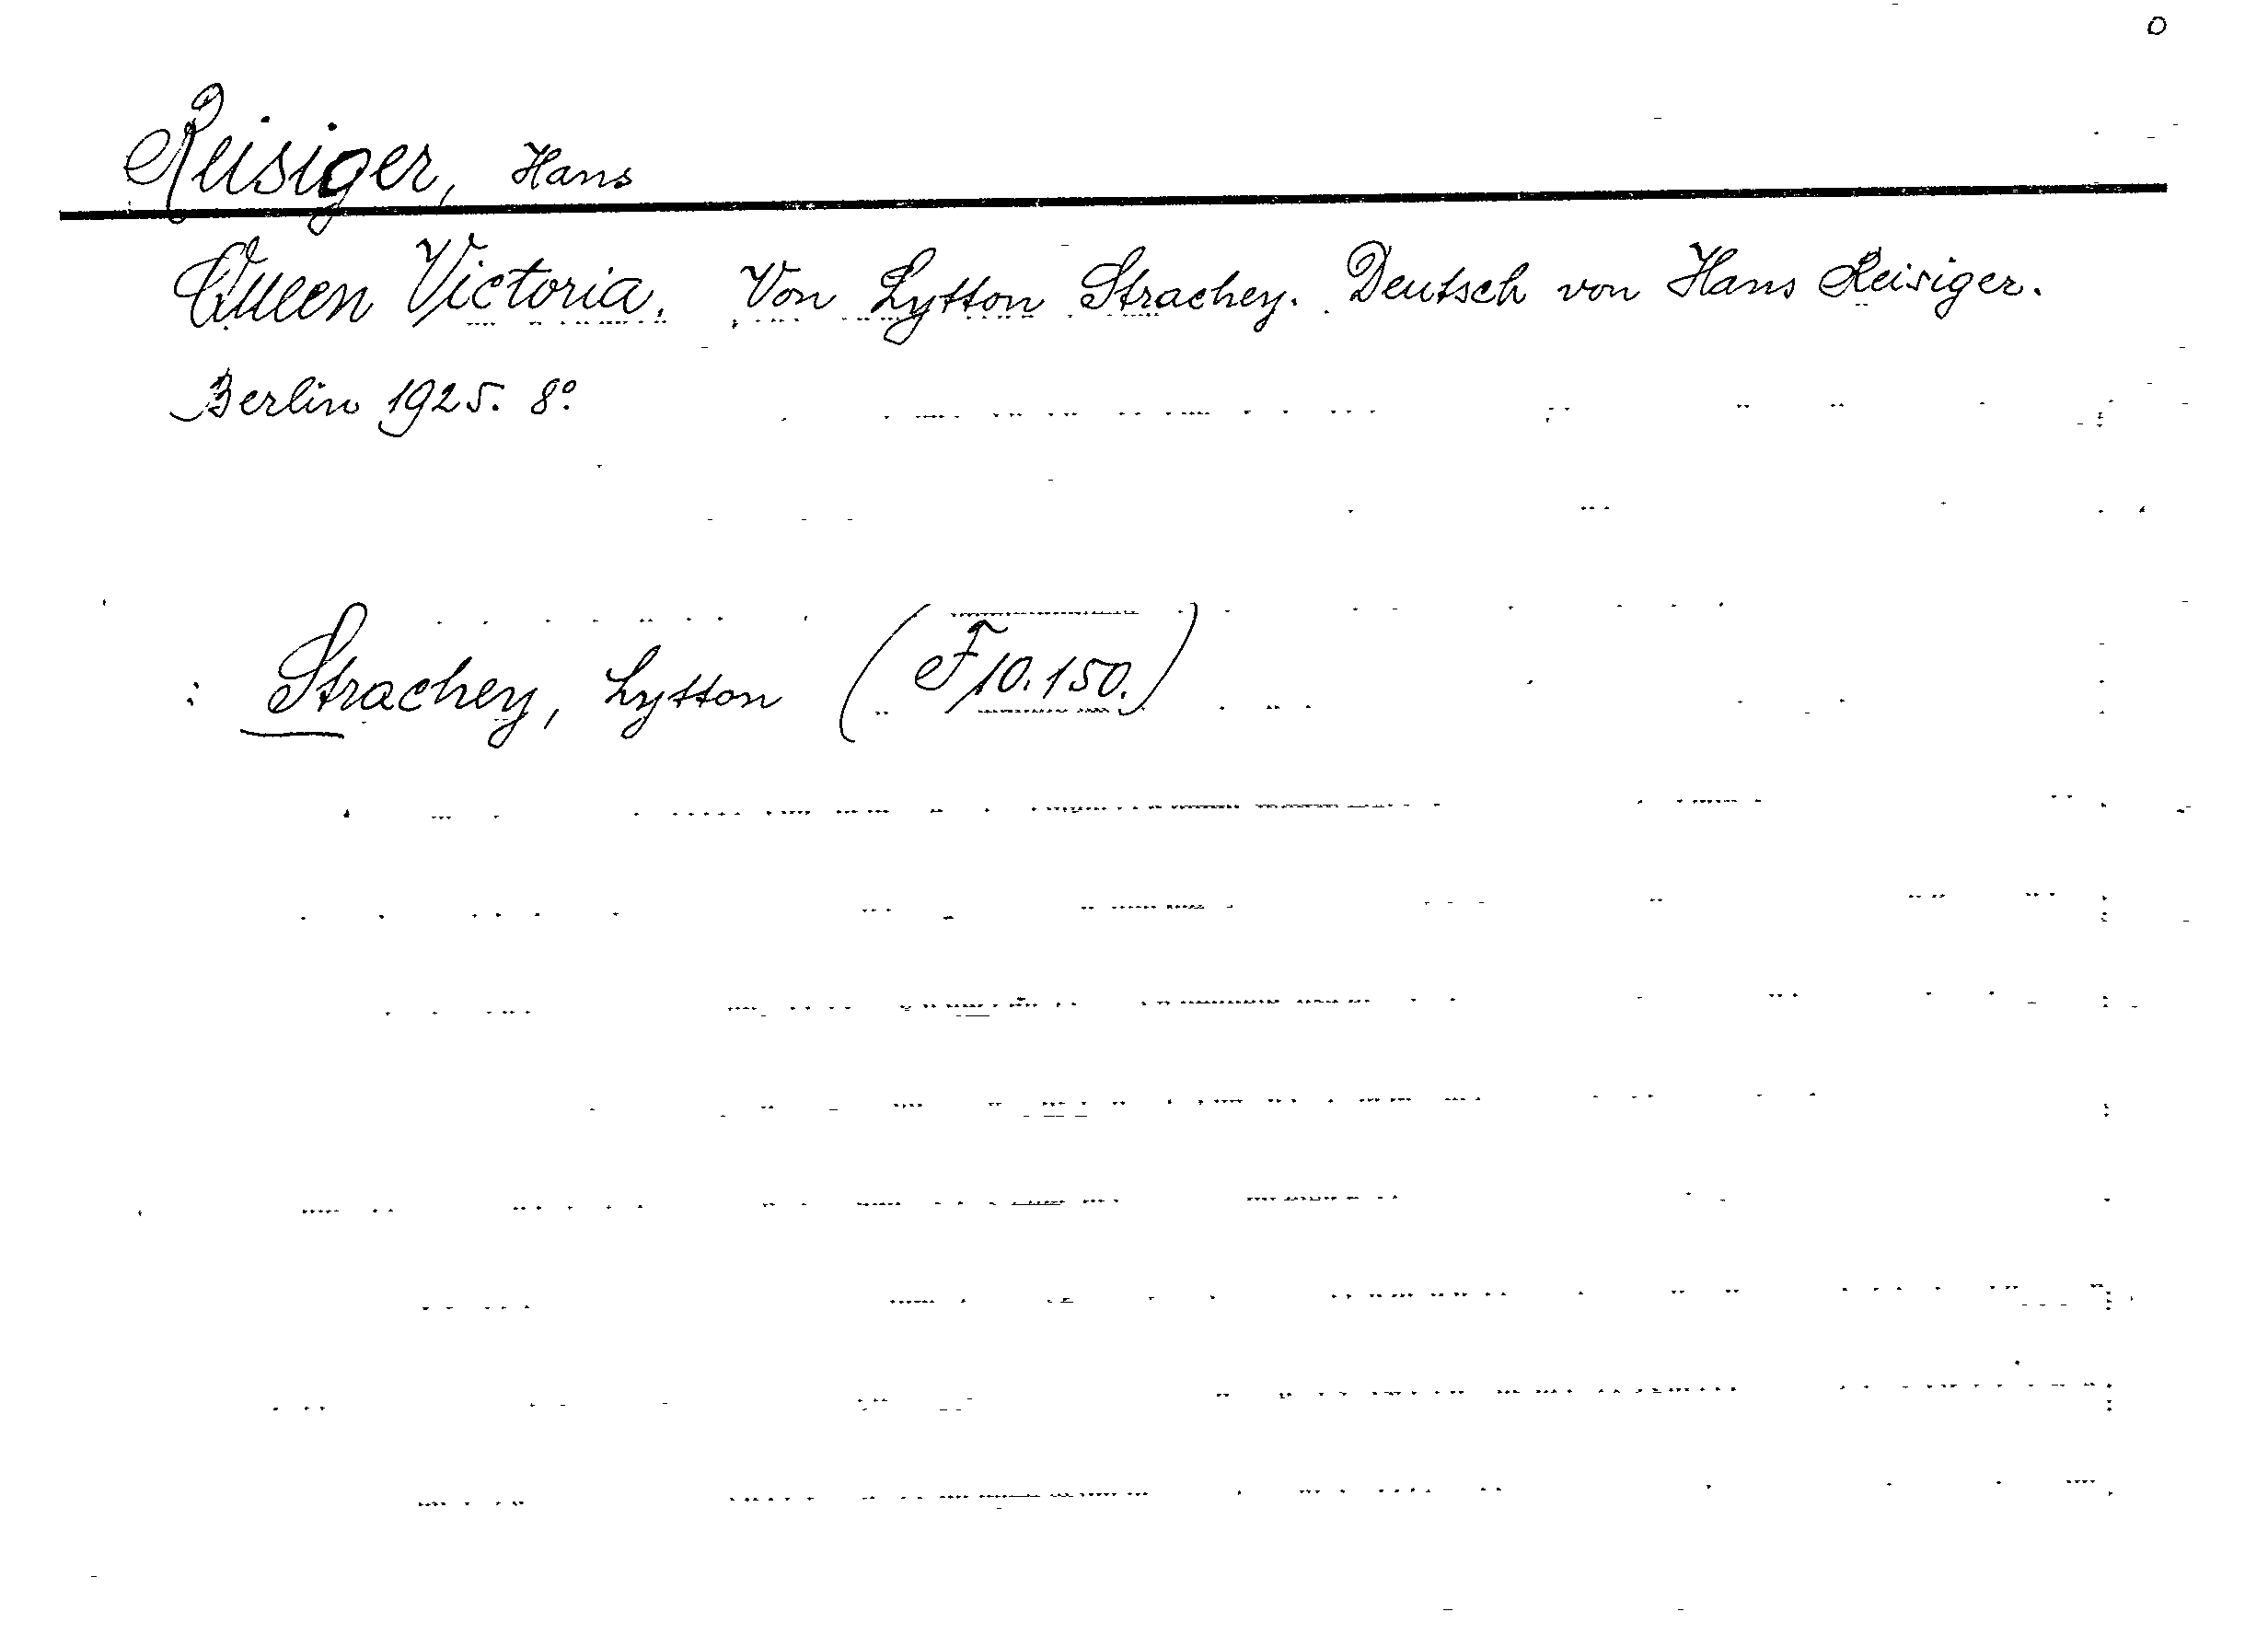 Reisiger, Hans
Queen Victoria. Von Lytton Strachey. Deutsch von Hans Reisiger.
Berlin 1925. 8°.
: Strachey, Lytton (F10.150.)